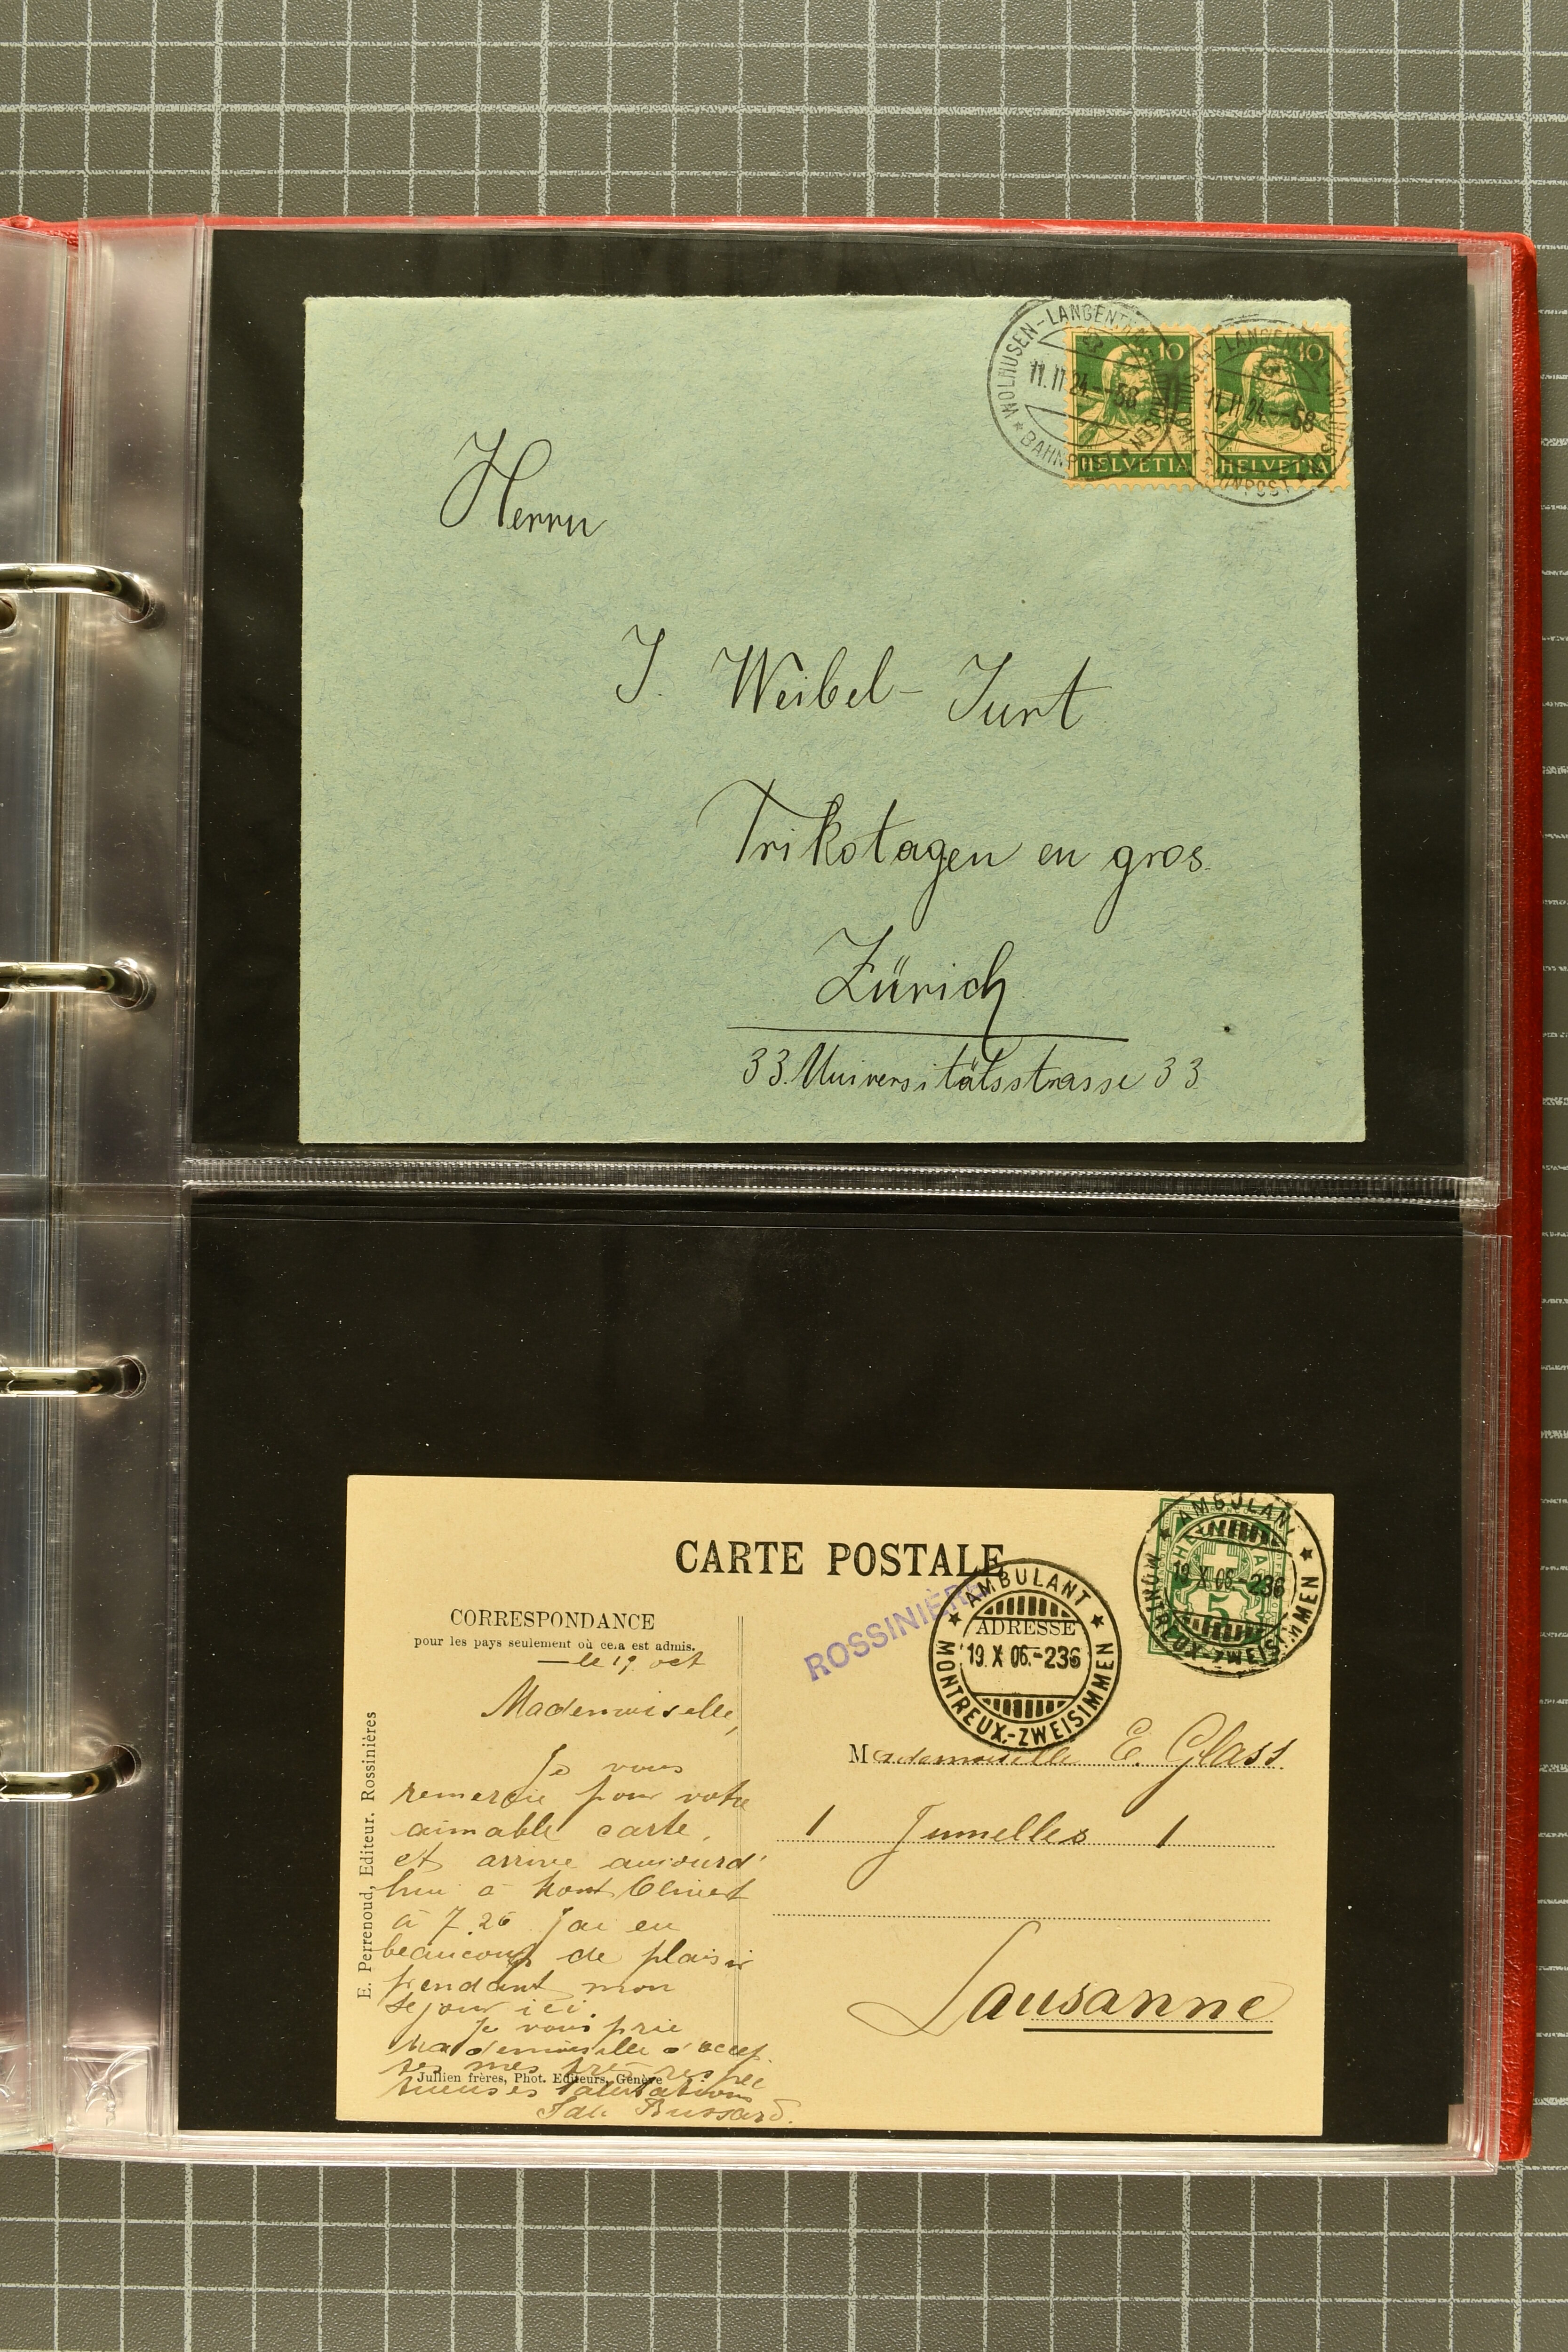 WOLHUSEN-LANGENTHAL-WOLHUSEN
11.11.24.-58
* BAHNPOST *
10
HELVETIA
WOLHUSEN-LANGENTHAL-WOLHUSEN
11.11.24.-58
BAHNPOST
10
HELVETIA
Herrn
J. Weibel-Jurt
Trikotagen en gros.
Zürich
33. Universitätsstrasse 33
CARTE POSTALE
CORRESPONDANCE
pour les pays seulement où cela est admis.
le 19. oct
Mademoiselle,
Je vous
remercie pour votre
aimable carte,
et arrive aujourd'
hui à
à 7.26 J'ai eu
beaucoup de plaisir
pendant mon
sejour ici.
Je vous prie
Mademoiselle d'accep
ter mes très respec
tueuses salutations
Bussard.
E. Perrenoud, Editeur. Rossinières
Jullien frères, Phot. Editeurs, Genève
ROSSINIÈRE
* AMBULANT *
ADRESSE
19. X 06.-236
MONTREUX.-ZWEISIMMEN
* AMBULANT *
19. X 06.-236
MONTREUX.-ZWEISIMMEN
5
Mademoiselle E. Glass.
1 Jumelles 1
Lausanne